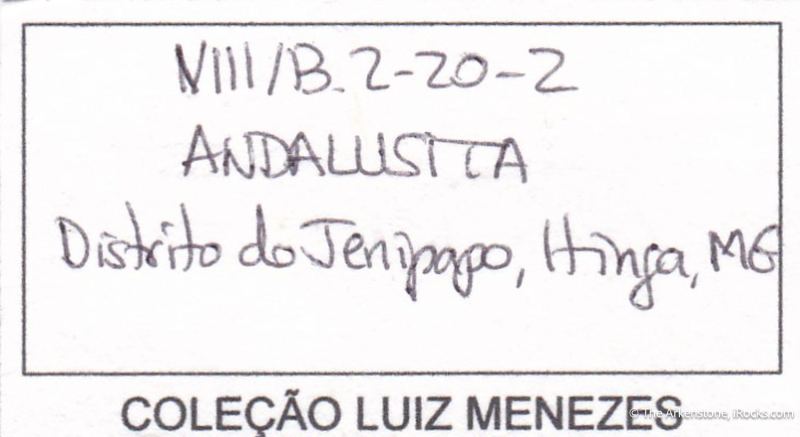 VIII/B.2-20-2
ANDALUSITA
Distrito do Jenipapo, Itinga, MG
COLEÇÃO LUIZ MENEZES
© The Arkenstone, iRocks.com